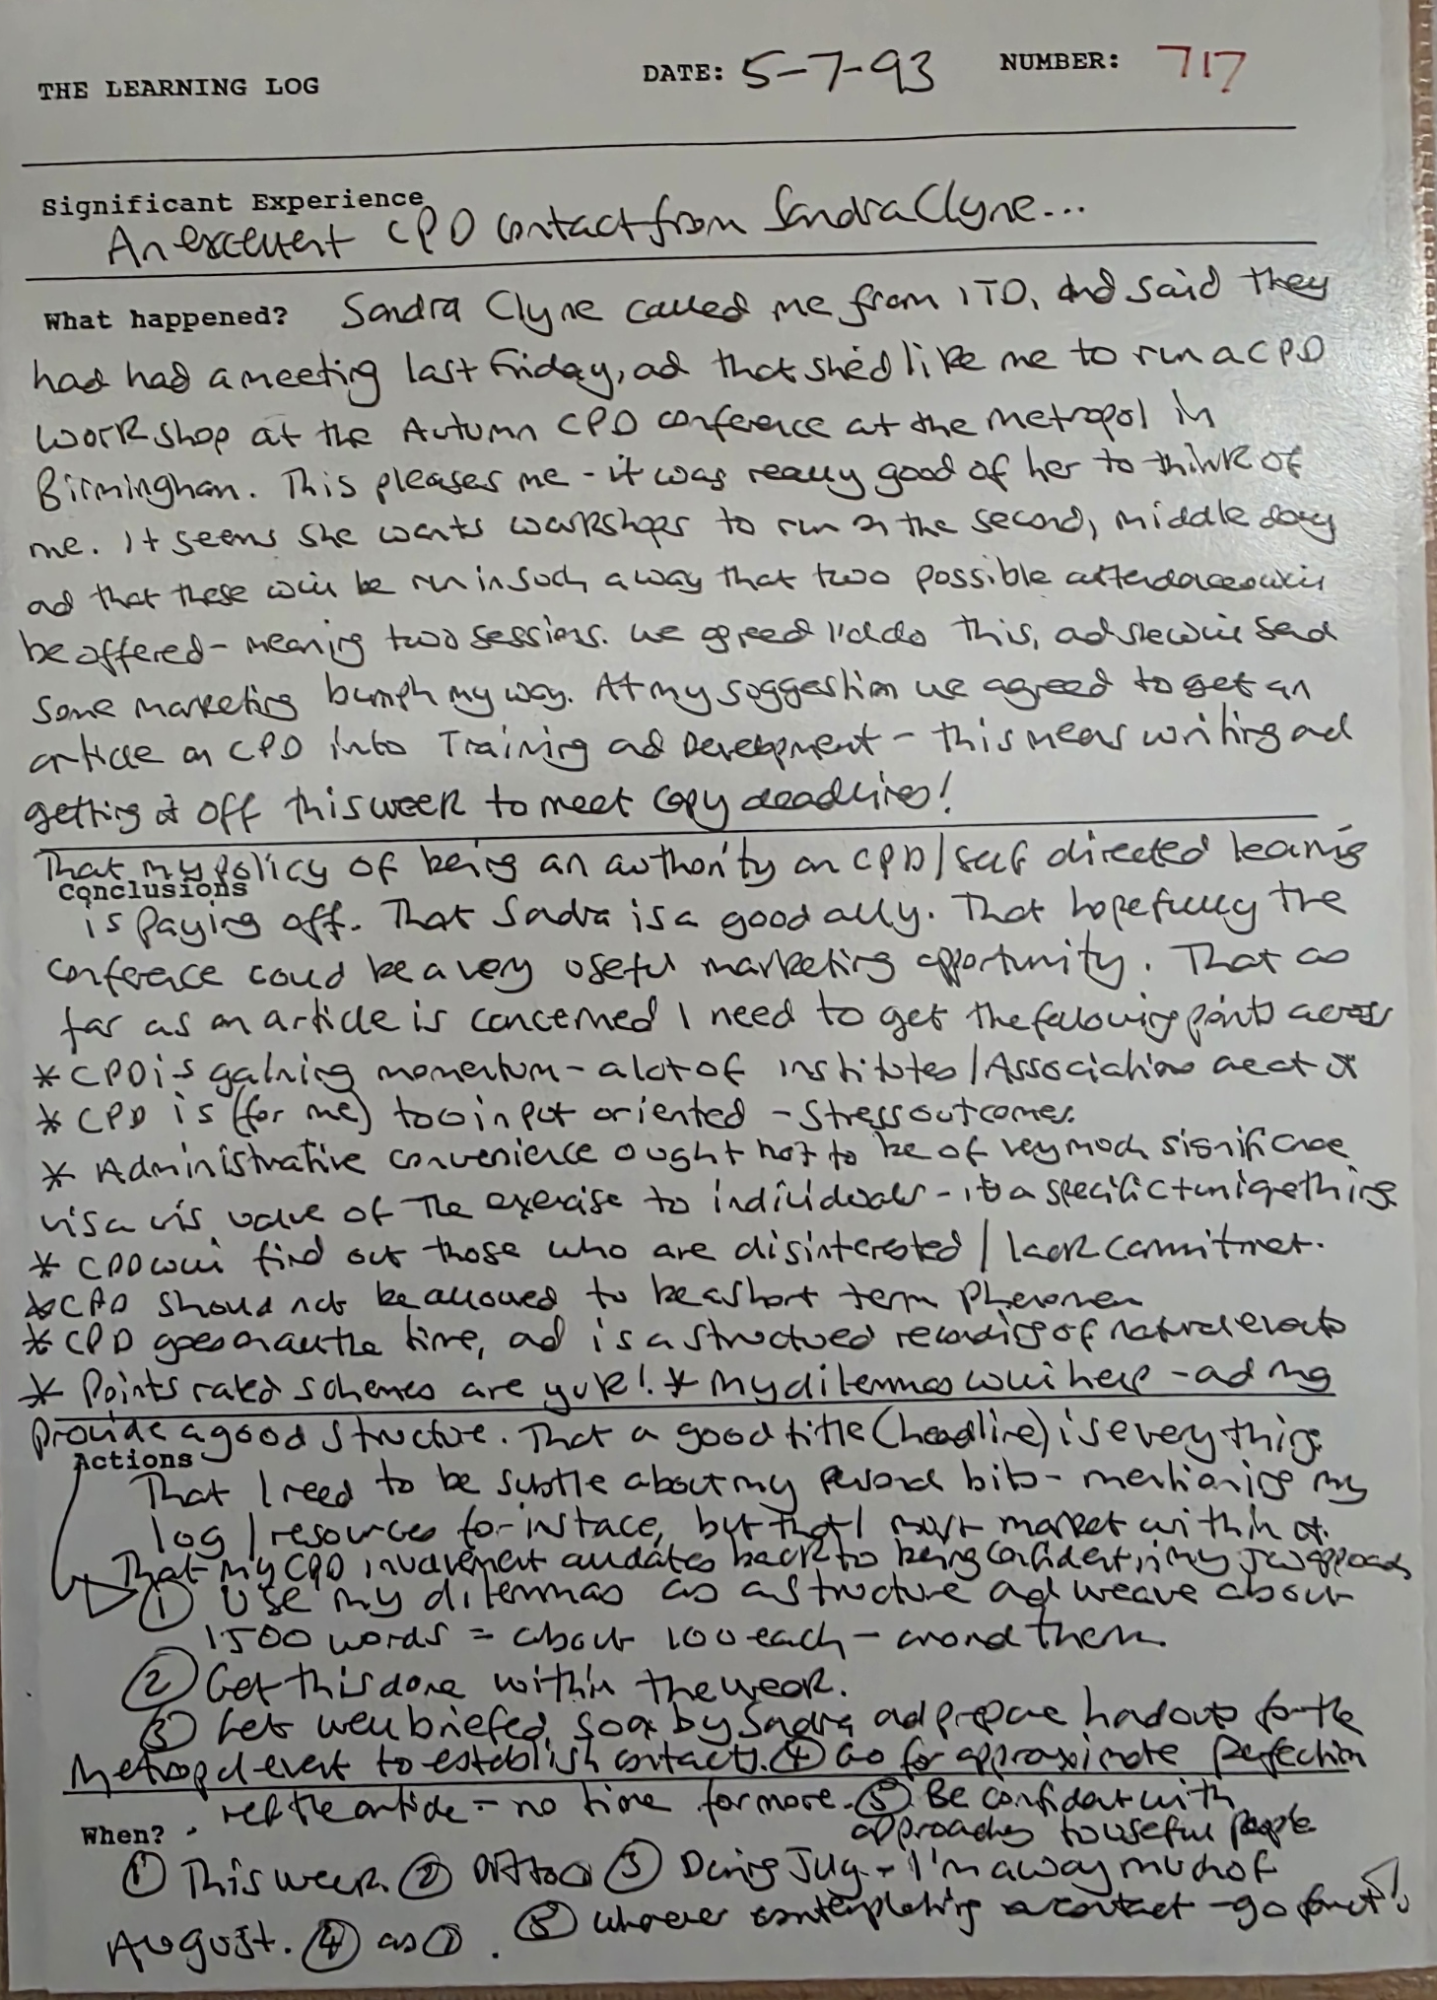 THE LEARNING LOG DATE: 5-7-93 NUMBER: 717
Significant Experience
An excellent CPD contact from Sandra Clyne...
What happened? Sandra Clyne called me from ITD, and said they
had had a meeting last Friday, ad that she'd like me to run a CPD
workshop at the Autumn CPD conference at the Metropol in
Birmingham. This pleases me - it was really good of her to think of
me. It seems she wants workshops to run on the second, middle day
ad that these will be run in such a way that two possible attendances will
be offered - meaning two sessions. We agreed I'd do this, ad she will send
some marketing bumph my way. At my suggestion we agreed to get an
article on CPD into Training ad Development - this means writing ad
getting it off this week to meet copy deadlines!
That my policy of being an authority on CPD/self directed learning
Conclusions
is paying off. That Sandra is a good ally. That hopefully the
conference could be a very useful marketing opportunity. That as
far as an article is concerned I need to get the following points across
* CPD is gaining momentum - a lot of Institutes/Associations are at it
* CPD is (for me) too input oriented - stress outcomes.
* Administrative convenience ought not to be of very much significance
vis a vis value of the exercise to individuals - it's a specific + unique thing
* CPD will find out those who are disinterested / lack commitment.
* CPD should not be allowed to be a short term phenomen
* CPD goes on all the time, ad is a structured recording of natural events
* Points rated schemes are yuk! * My dilemmas will help - ad
provide a good structure. That a good title (headline) is everything
Actions
That I need to be subtle about my personal bits - mentioning my
log / resources for instance, but that I must market within it.
That my CPD involvement all dates back to being confident in my approach
① Use my dilemmas as a structure ad weave about
1500 words = about 100 each - around them.
② Get this done within the week.
③ Get well briefed, soon by Sandra ad prepare handouts for the
Metropol event to establish contacts. ④ Go for approximate perfection
re the article - no time for more. ⑤ Be confident with
When? approaches to useful people
① This week ② Ditto ③ During July - I'm away much of
August. ④ as ①. ⑤ Whenever contemplating a contact - go for it!